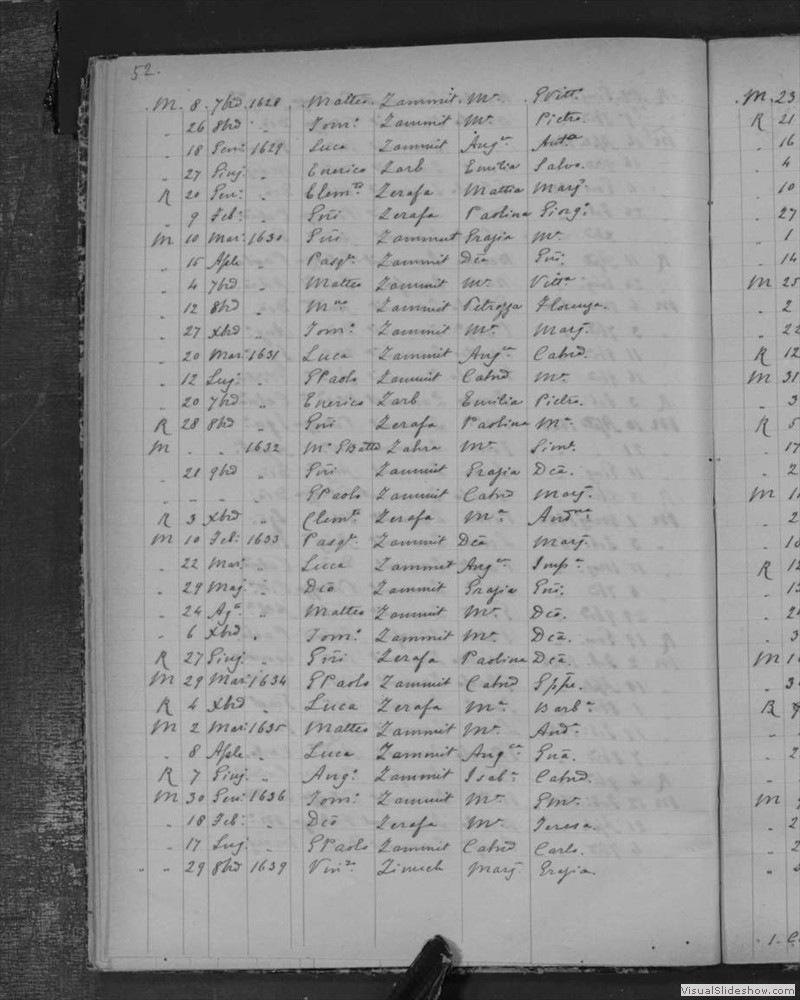 52.
M. 8. 7bd 1628 Matteo Zammit Ma. GVitta.
" 26 8bd " Toma. Zammit Ma. Pietro.
" 18 Gen: 1629 Luca Zammit Anga. Anta.
" 27 Giuj " Enerico Zarb Emilia Salvo.
R 20 Gen: " Clemte Zerafa Mattia Marj.
" 9 Feb: " Gni Zerafa Paolina Giorga.
M 10 Mar: 1630 Gni Zammut Grazia Ma.
" 15 Aple " Pasqe. Zammit Dca Gni.
" 4 7bd " Matteo Zammit Ma. Vitta.
" 12 8bd " Mno Zammit Petrozza Florenza.
" 27 xbd " Toma. Zammit Ma. Marj.
" 20 Mar: 1631 Luca Zammit Anga. Catnd.
" 12 Luj. " GPaolo Zammit Catnd Ma.
" 20 7bd " Enerico Zarb Emilia Pietro.
R 28 8bd " Gni Zerafa Paolina Ma.
M " " 1632 Ma GBatta Zahra Ma. Simo.
" 21 9bd " Gni Zammit Grazia Dca.
" " " " GPaolo Zammit Catnd Marj.
R 3 xbd " Clemte Zerafa Ma. Andna.
M 10 Feb: 1633 Pasqe. Zammit Dca Marj.
" 22 Mar: " Luca Zammit Anga. Impa.
" 29 Maj. " Dco Zammit Grazia Gni.
" 24 Aga. " Matteo Zammit Ma. Dco.
" 6 xbd " Toma. Zammit Ma. Dca.
R 27 Giuj " Gni Zerafa Paolina Dca.
M 29 Mar: 1634 GPaolo Zammit Catnd Gppe.
R 4 xbd " Luca Zerafa Ma. Barba.
M 2 Mar: 1635 Matteo Zammit Ma. Anda.
" 8 Aple " Luca Zammit Anga. Gna.
R 7 Giuj. " Anga. Zammit Isaba. Catnd.
M 30 Gen: 1636 Toma. Zammit Ma. Gma.
" 18 Feb: " Dco Zerafa Ma. Teresa.
" 17 Luj. " GPaolo Zammit Catnd Carlo.
" " 29 8bd 1639 Vinzo Zimech Marj Grazia.
M. 23
R 21
" 16
" 4
" 10
" 27
" 1
" 14
M 25
" 2
" 22
R 12
M 31
" 3
R 5
" 17
" 2
M
" 2
R 12
M
VisualSlideshow.com